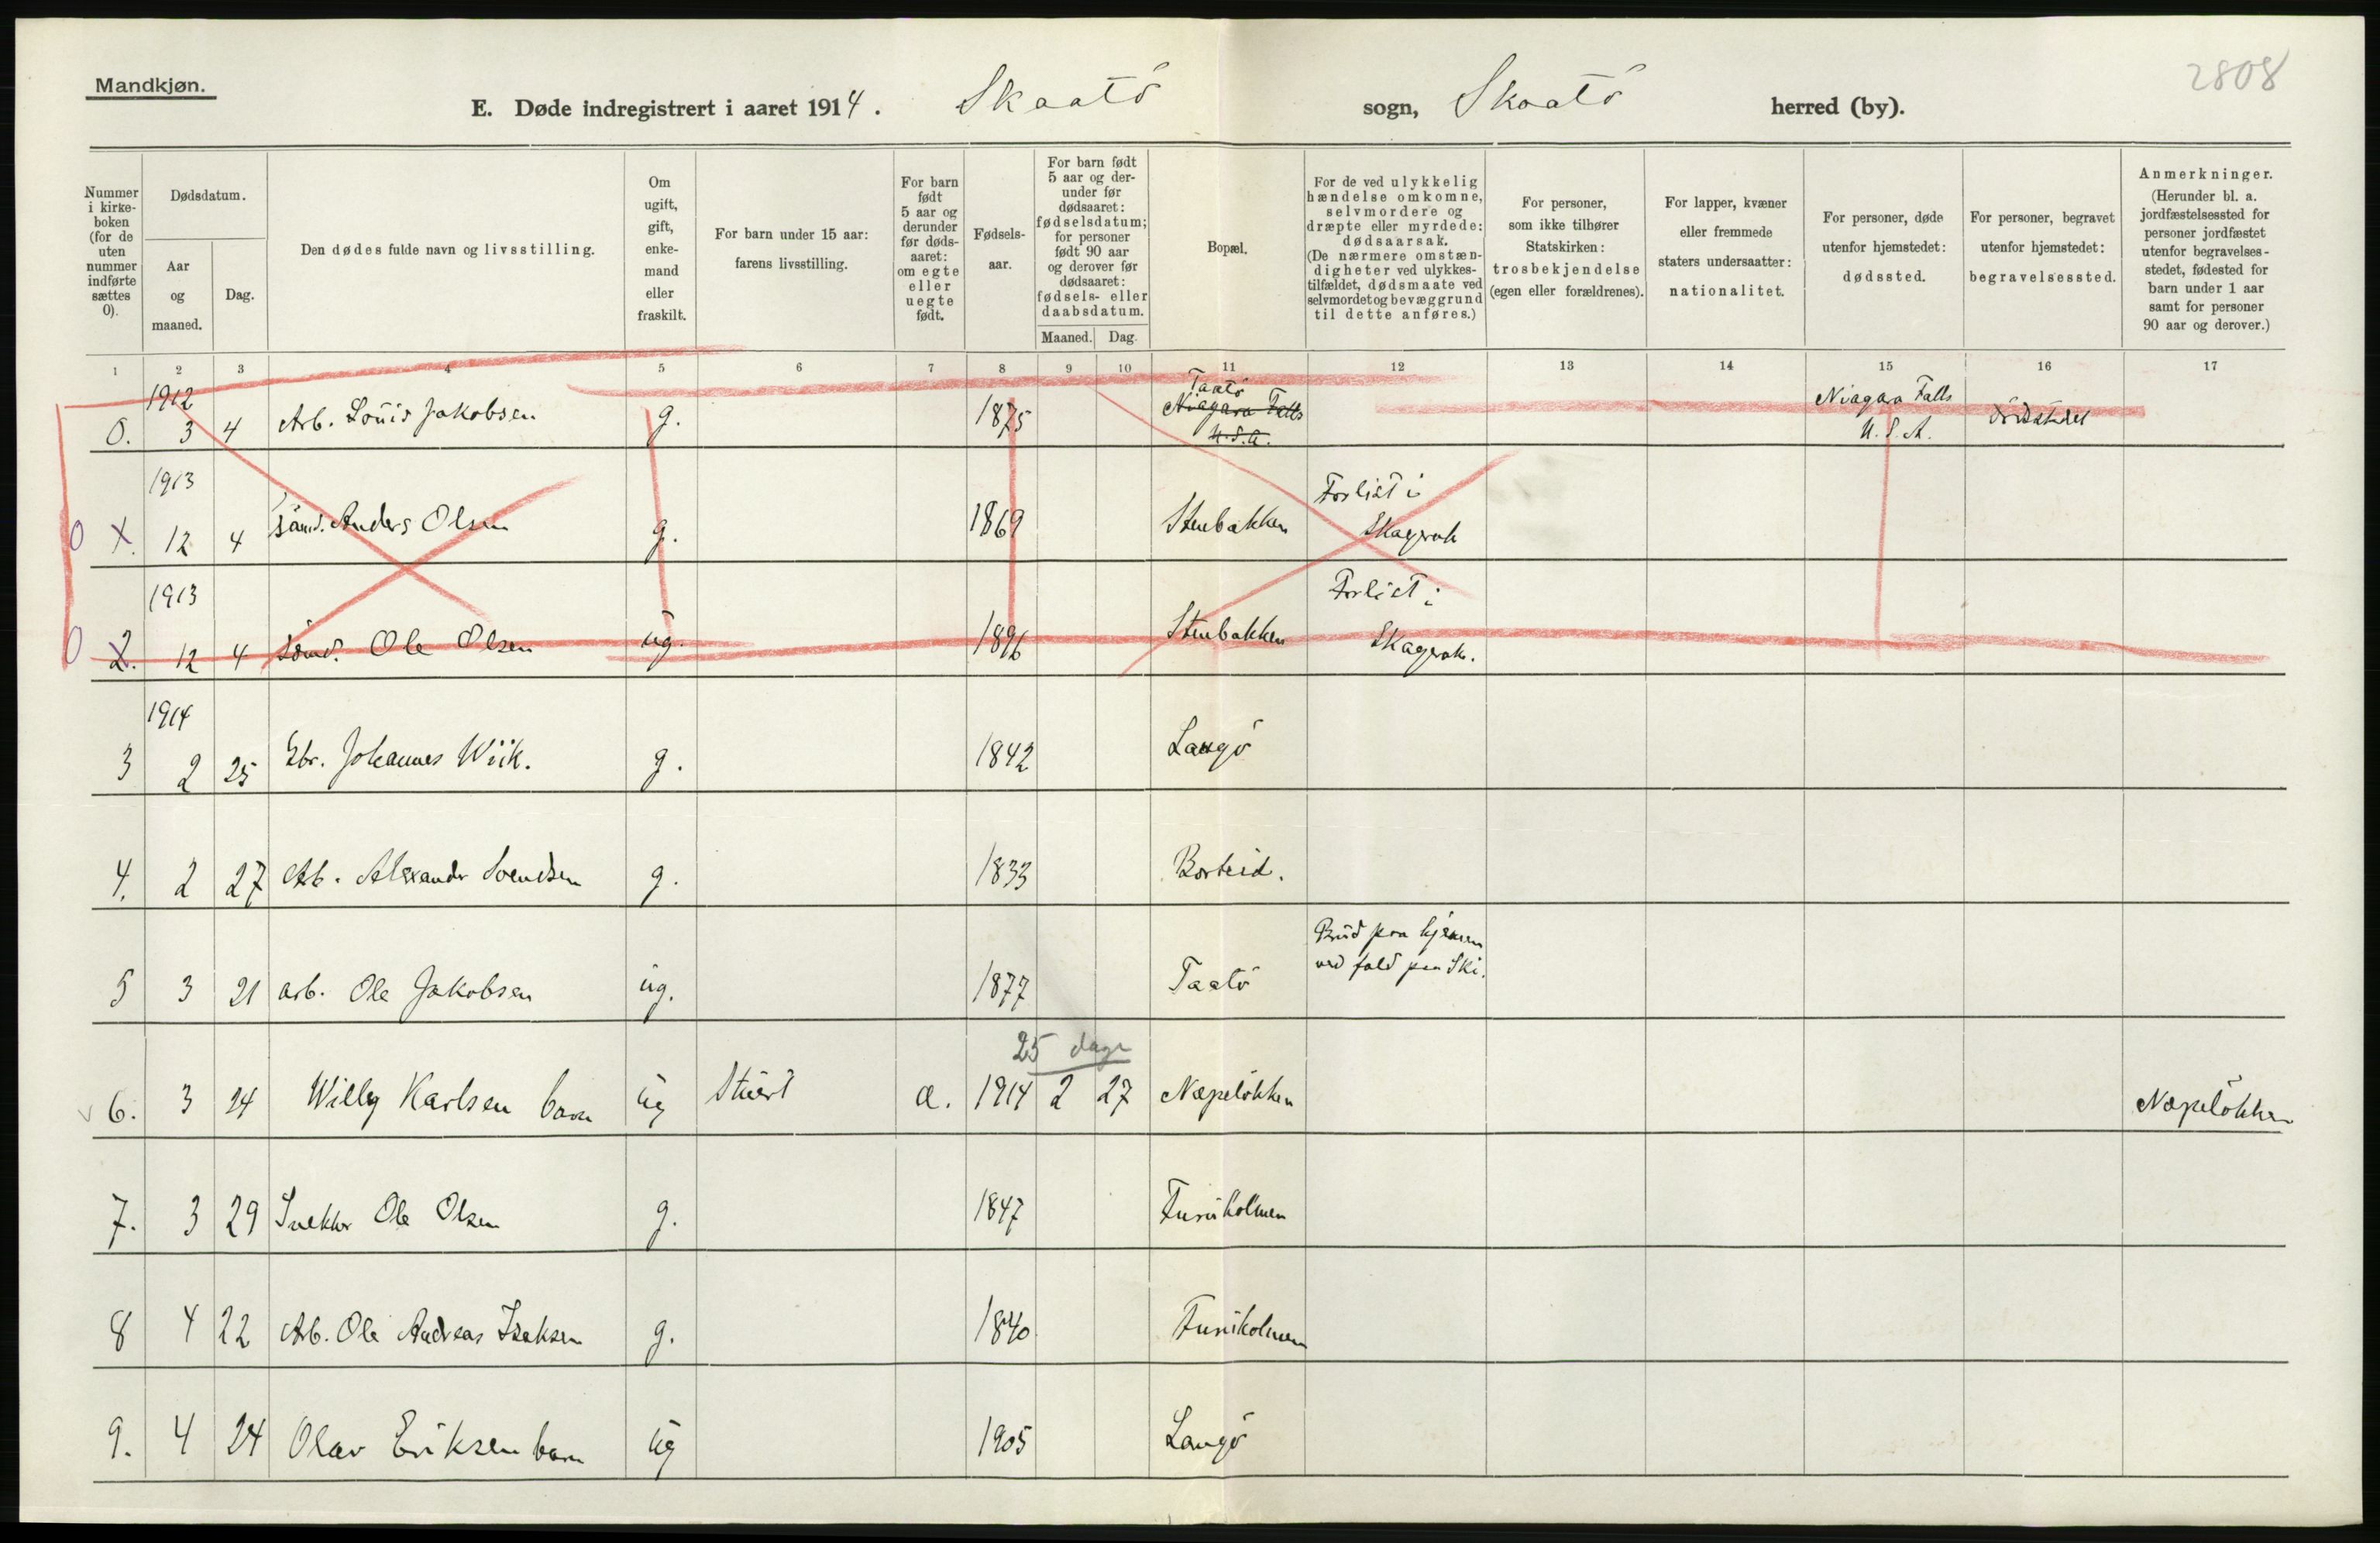 Mandkjøn.
2808
E. Døde indregistrert i aaret 1914. Skaatö sogn, Skaatö herred (by).
Nummer i kirke-boken (for de uten nummer indførte sættes 0).
Dødsdatum.
Aar og maaned.
Dag.
Den dødes fulde navn og livsstilling.
Om ugift, gift, enke-mand eller fraskilt.
For barn under 15 aar: farens livsstilling.
For barn født 5 aar og derunder før døds-aaret: om egte eller uegte født.
Fødsels-aar.
For barn født 5 aar og der-under før dødsaaret: fødselsdatum; for personer født 90 aar og derover før dødsaaret: fødsels- eller daabsdatum.
Maaned. Dag.
Bopæl.
For de ved ulykkelig hændelse omkomne, selvmordere og dræpte eller myrdede: dødsaarsak. (De nærmere omstæn-digheter ved ulykkes-tilfældet, dødsmaate ved selvmordet og bevæggrund til dette anføres.)
For personer, som ikke tilhører Statskirken: trosbekjendelse (egen eller forældrenes).
For lapper, kvæner eller fremmede staters undersaatter: nationalitet.
For personer, døde utenfor hjemstedet: dødssted.
For personer, begravet utenfor hjemstedet: begravelsessted.
Anmerkninger. (Herunder bl. a. jordfæstelsessted for personer jordfæstet utenfor begravelses-stedet, fødested for barn under 1 aar samt for personer 90 aar og derover.)
1 2 3 4 5 6 7 8 9 10 11 12 13 14 15 16 17
1912
0. 3 4 Arb. Louis Jakobsen g. 1875 Taatö Niagara Falls U.S.A. Niagara Falls U.S.A. Dödstedet
1913
0 1. 12 4 Sömd. Anders Olsen g. 1869 Stenbakken Forlist i Skagerak
1913
0 2. 12 4 Sömd. Ole Olsen ug. 1896 Stenbakken Forlist i Skagerak.
1914
3 2 25 Gbr. Johannes Wiik. g. 1842 Langö
4. 2 27 Arb. Alexander Svendsen g. 1833 Borteid.
5 3 21 arb. Ole Jakobsen ug. 1877 Taatö Brud paa hjernen ved fald paa Ski.
25 dage
6. 3 24 Willy Karlsen barn ug Stuert æ. 1914 2 27 Næpelökken Næpelökken
7. 3 29 Snekker Ole Olsen g. 1847 Furuholmen
8 4 22 Arb. Ole Andreas Isaksen g. 1840 Furuholmen
9. 4 24 Olav Eriksen barn ug 1905 Langö